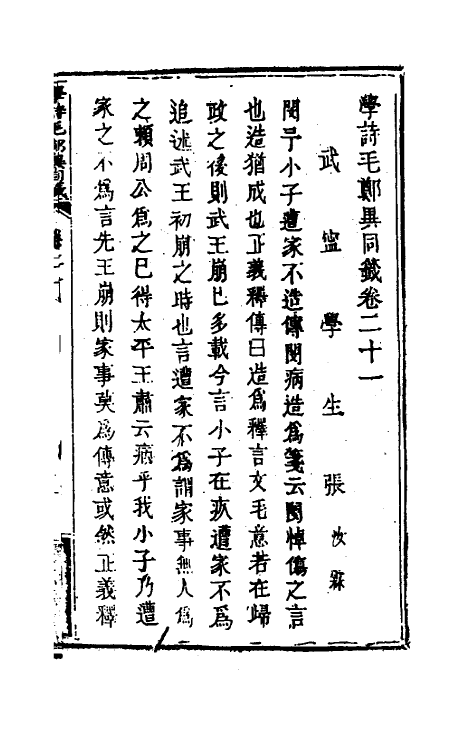 學詩毛鄭異同籤卷二十一
武寧學生張汝霖
閔予小子遭家不造傳閔病造爲箋云閔悼傷之言
也造猶成也正義釋傳曰造爲釋言文毛意若在歸
政之後則武王崩已多載今言小子在疚遭家不爲
追述武王初崩之時也言遭家不爲謂家事無人爲
之賴周公爲之已得太平王肅云病乎我小子乃遭
家之不爲言先王崩則家事莫爲傳意或然正義釋
學詩毛鄭異同籤